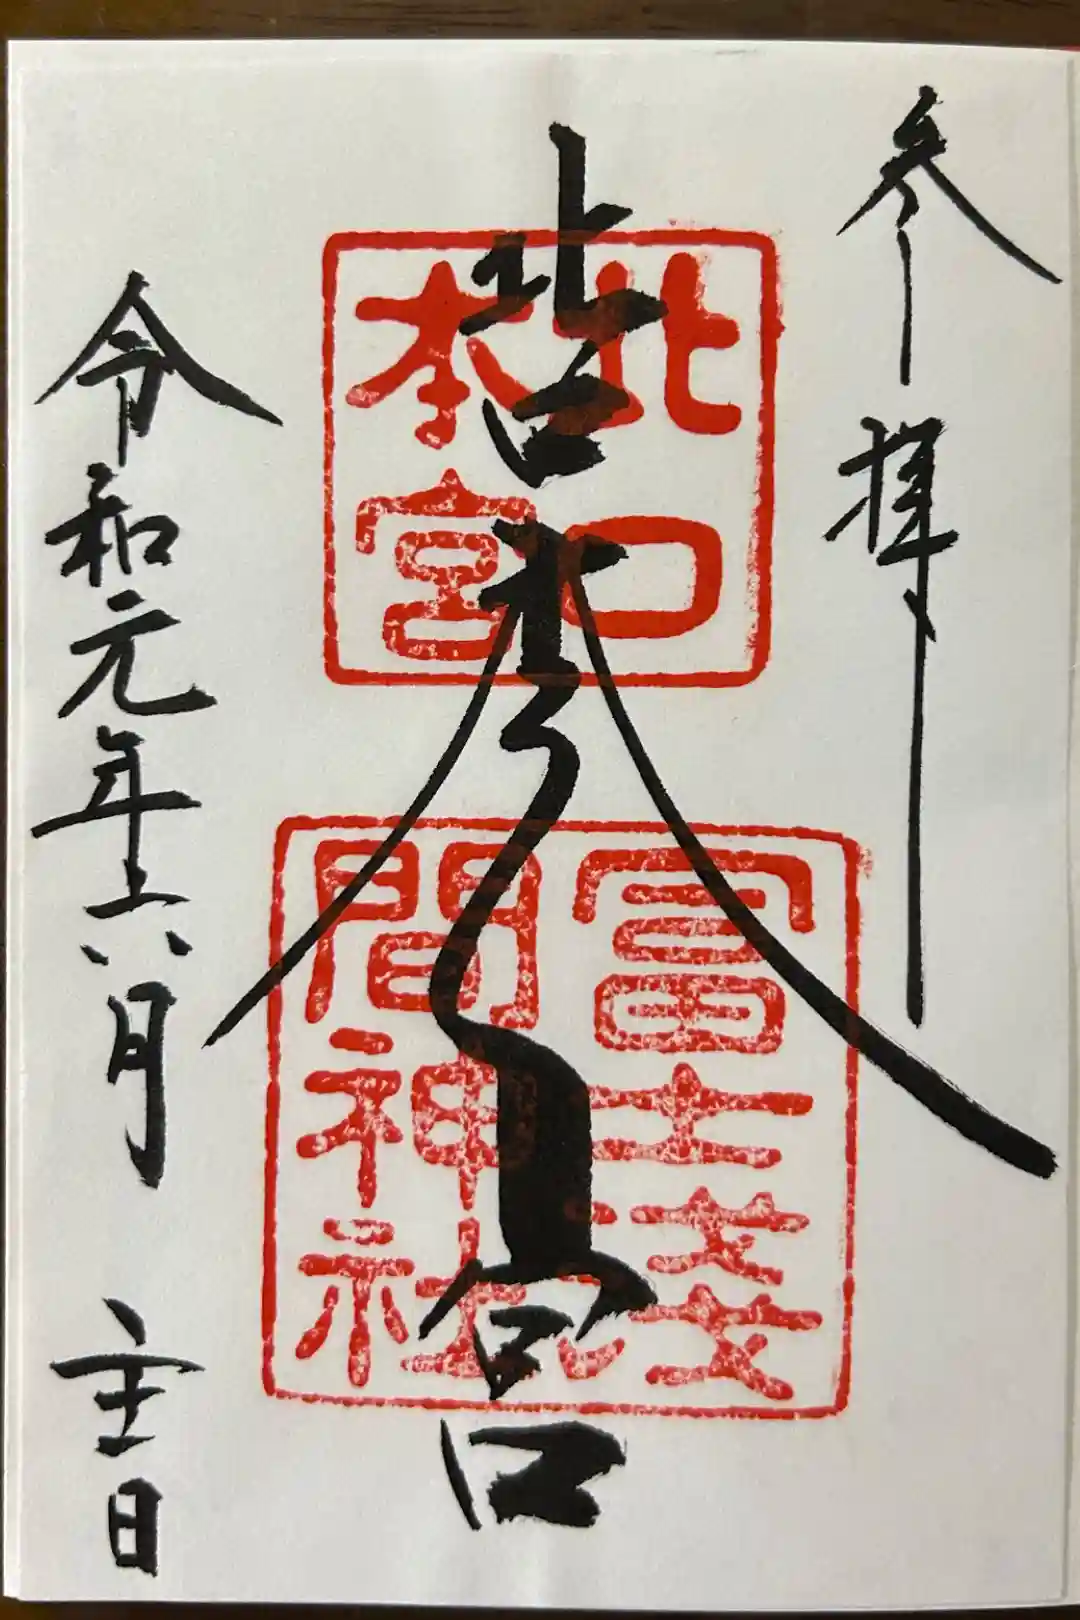 参拝
北口本宮
北口
本宮
冨士浅
間神社
令和元年六月 日